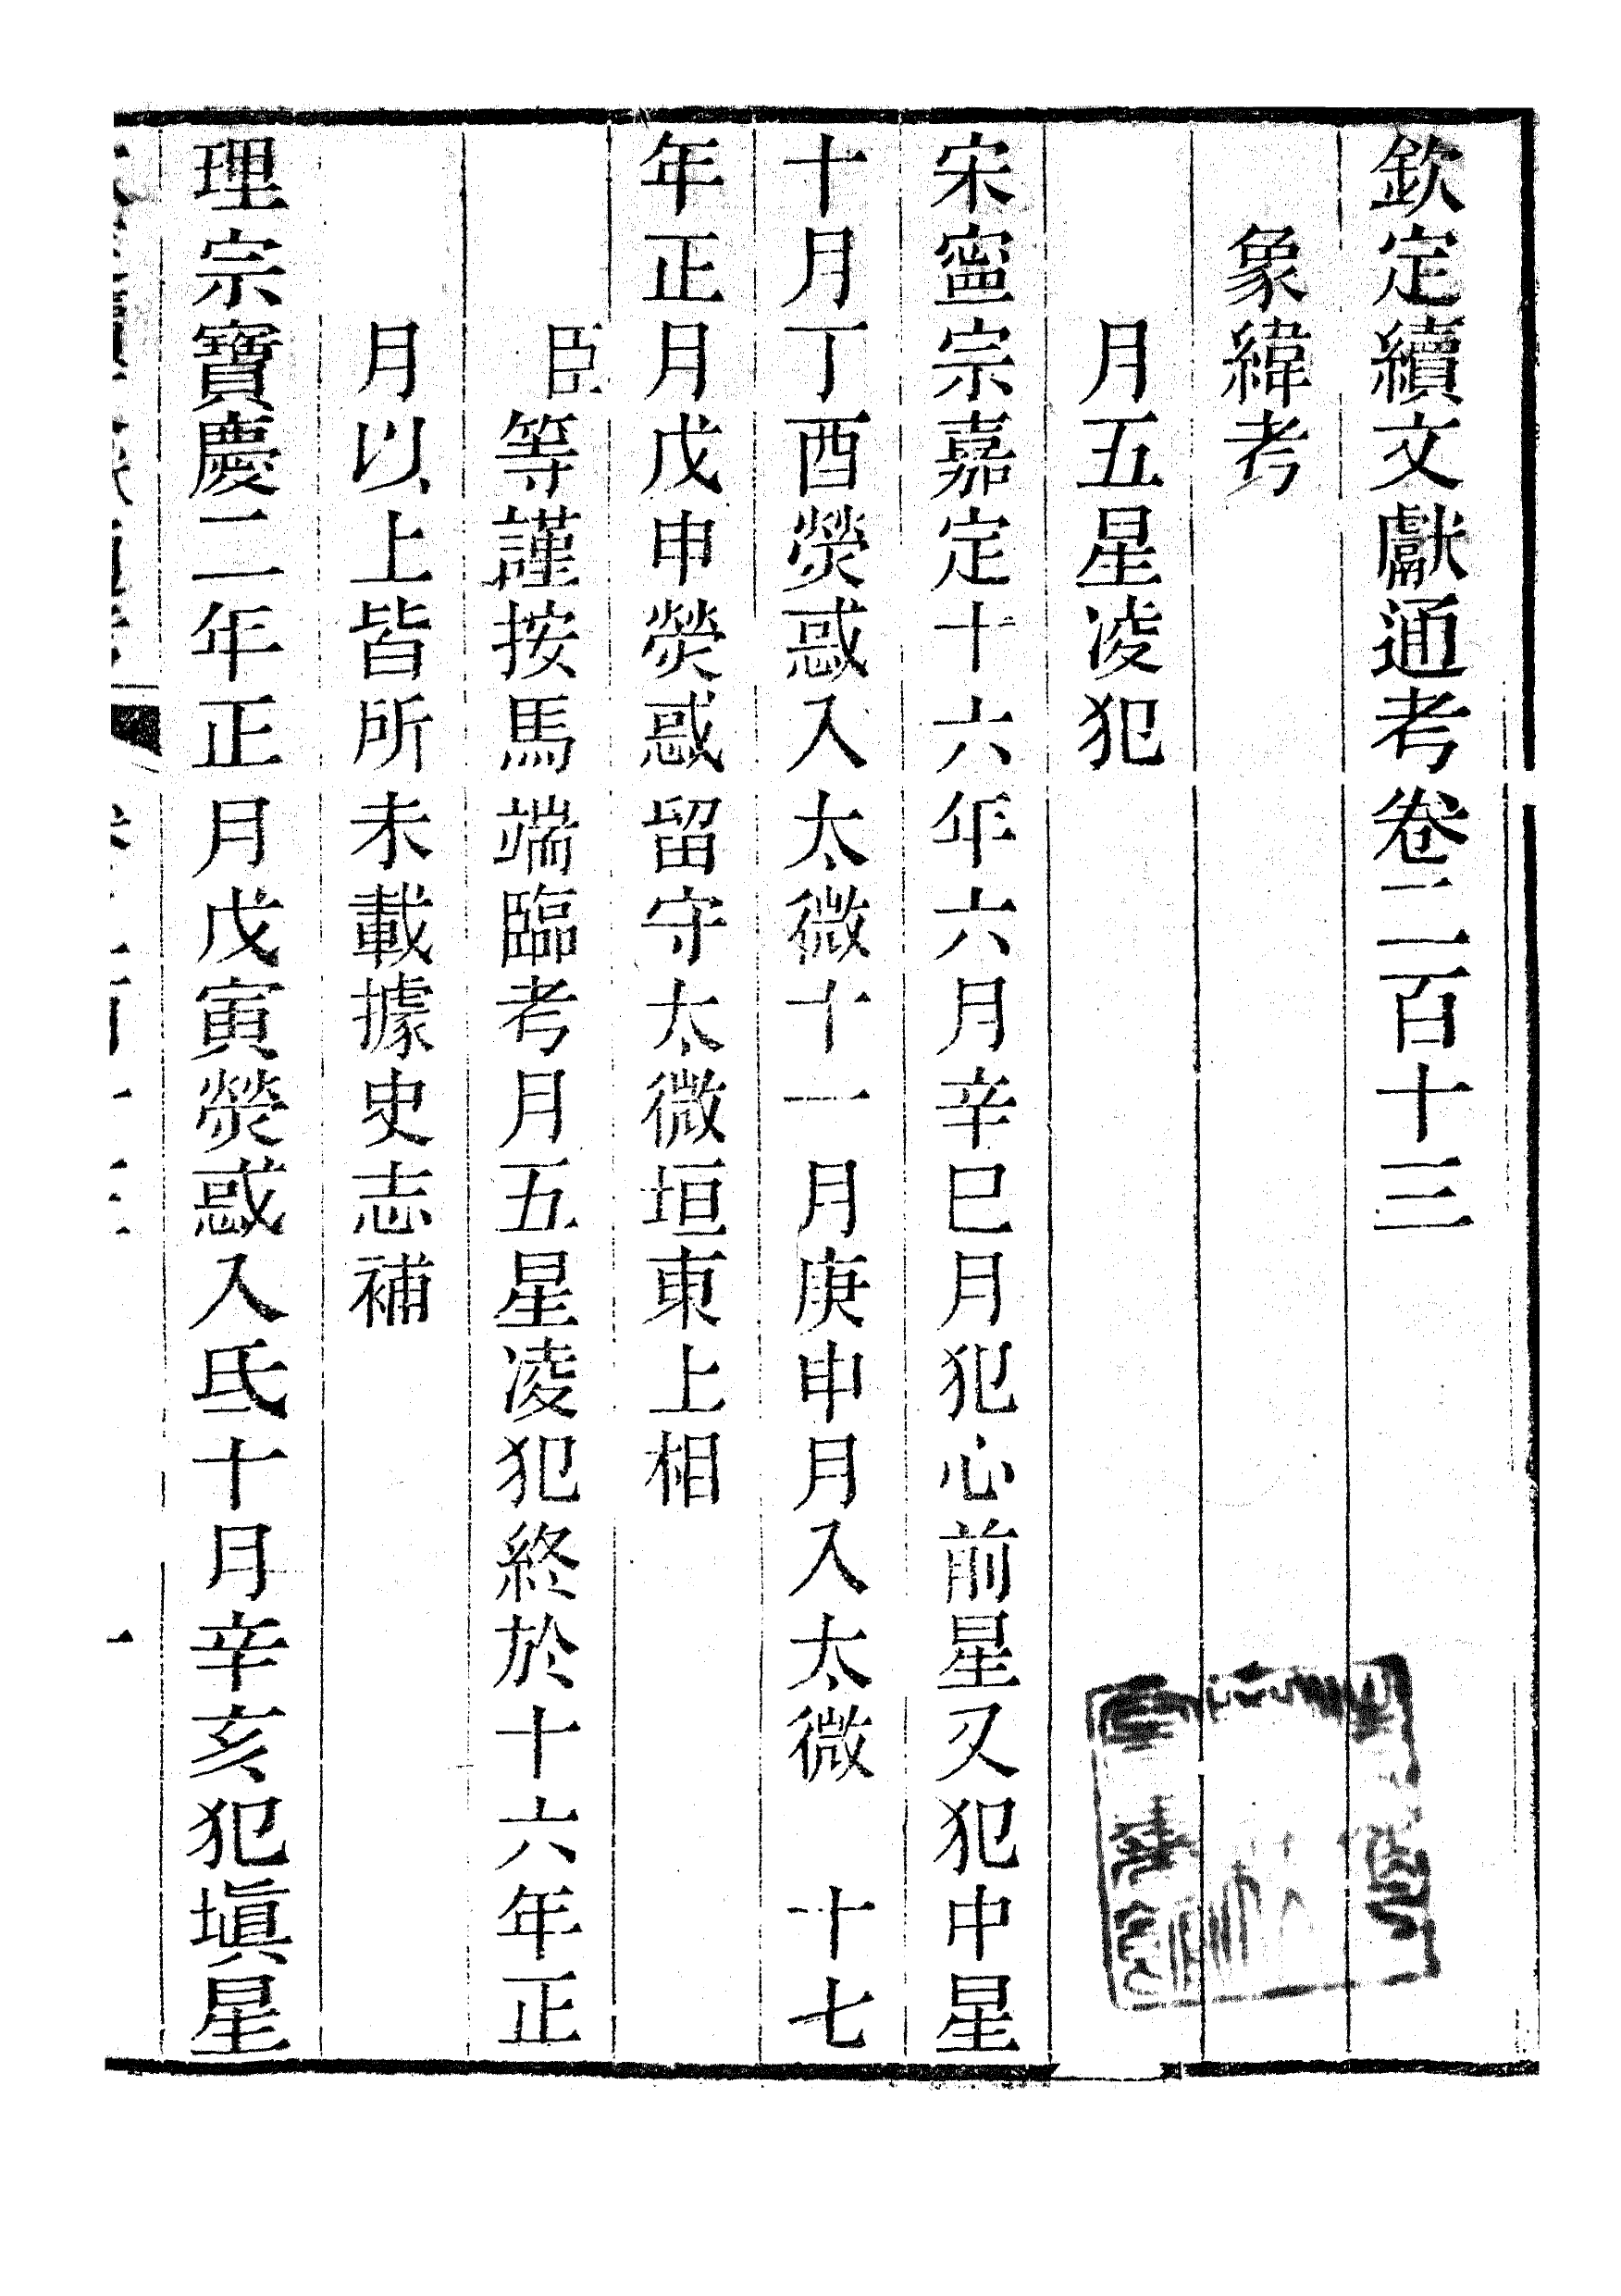 欽定續文獻通考卷二百十三
象緯考
月五星凌犯
宋寧宗嘉定十六年六月辛巳月犯心前星又犯中星
十月丁酉熒惑入太微十一月庚申月入太微 十七
年正月戊申熒惑留守太微垣東上相
臣等謹按馬端臨考月五星凌犯終於十六年正
月以上皆所未載據史志補
理宗寶慶二年正月戊寅熒惑入氐十月辛亥犯塡星